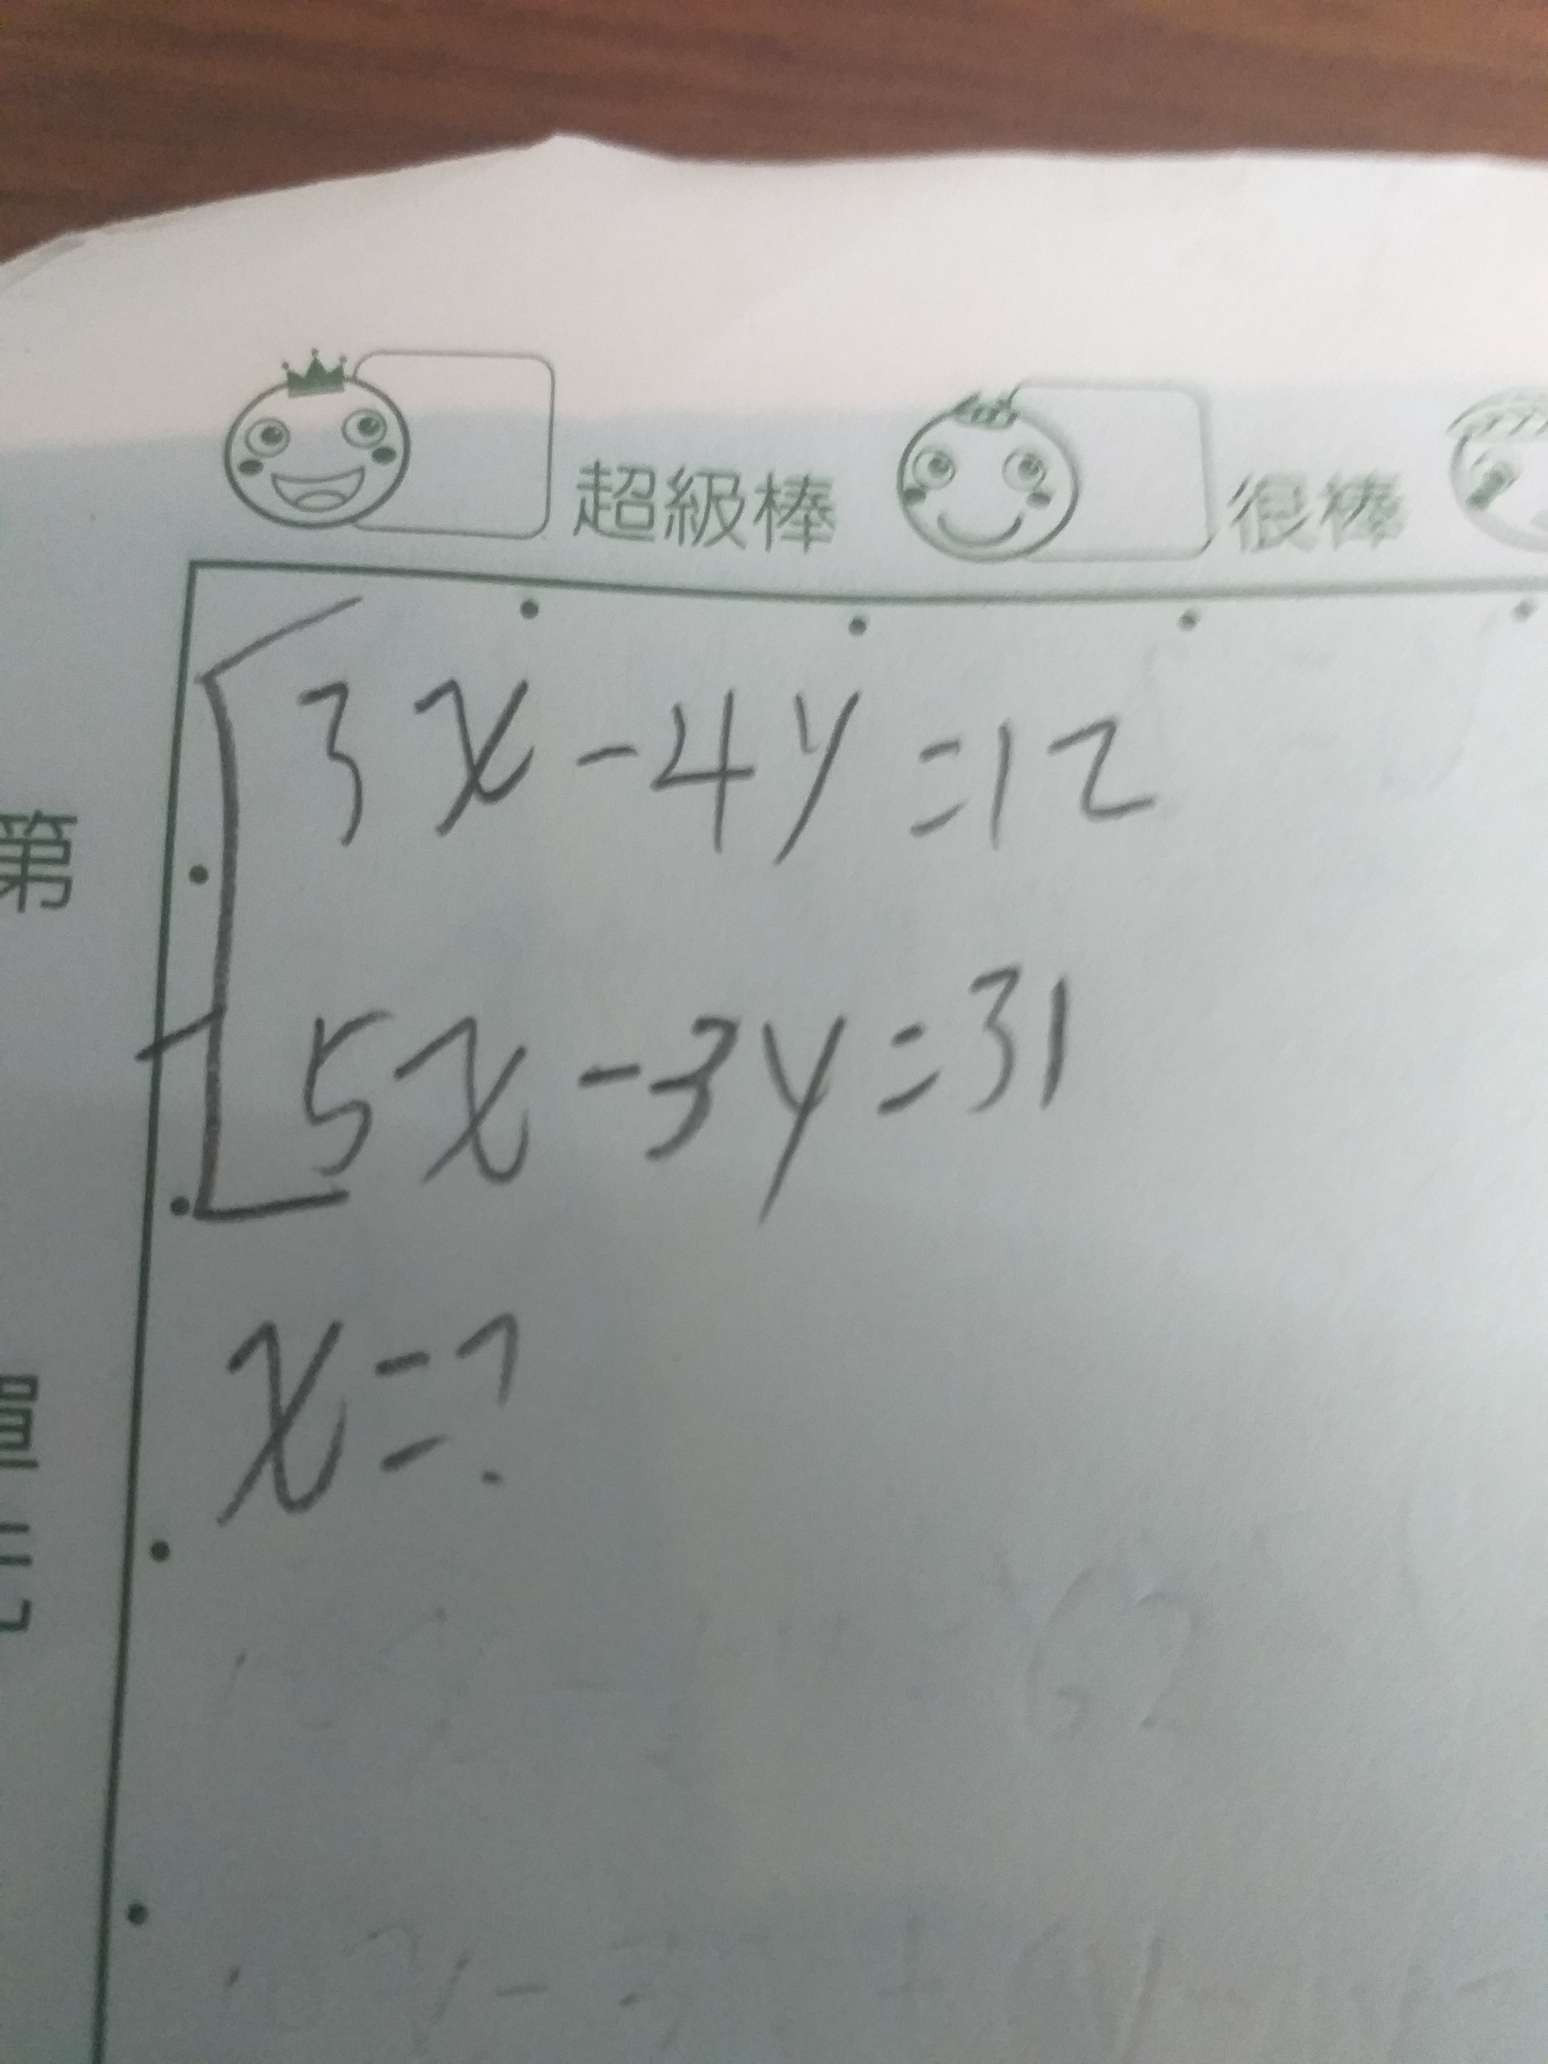 超級棒 很棒
3x-4y=12
5x-3y=31
x=?
第